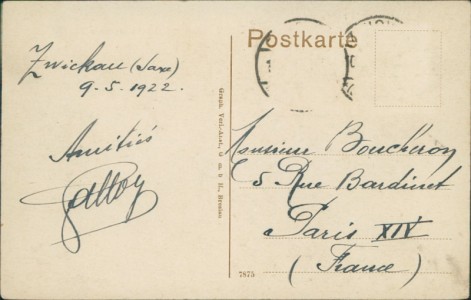 Postkarte
Zwickau (Sax)
9-5-1922.
Amitiés
Graph. Verl.-Anst., G. m. b. H., Breslau
Monsieur Bouchéron
5 Rue Bardinet
Paris XIV
(France)
7875